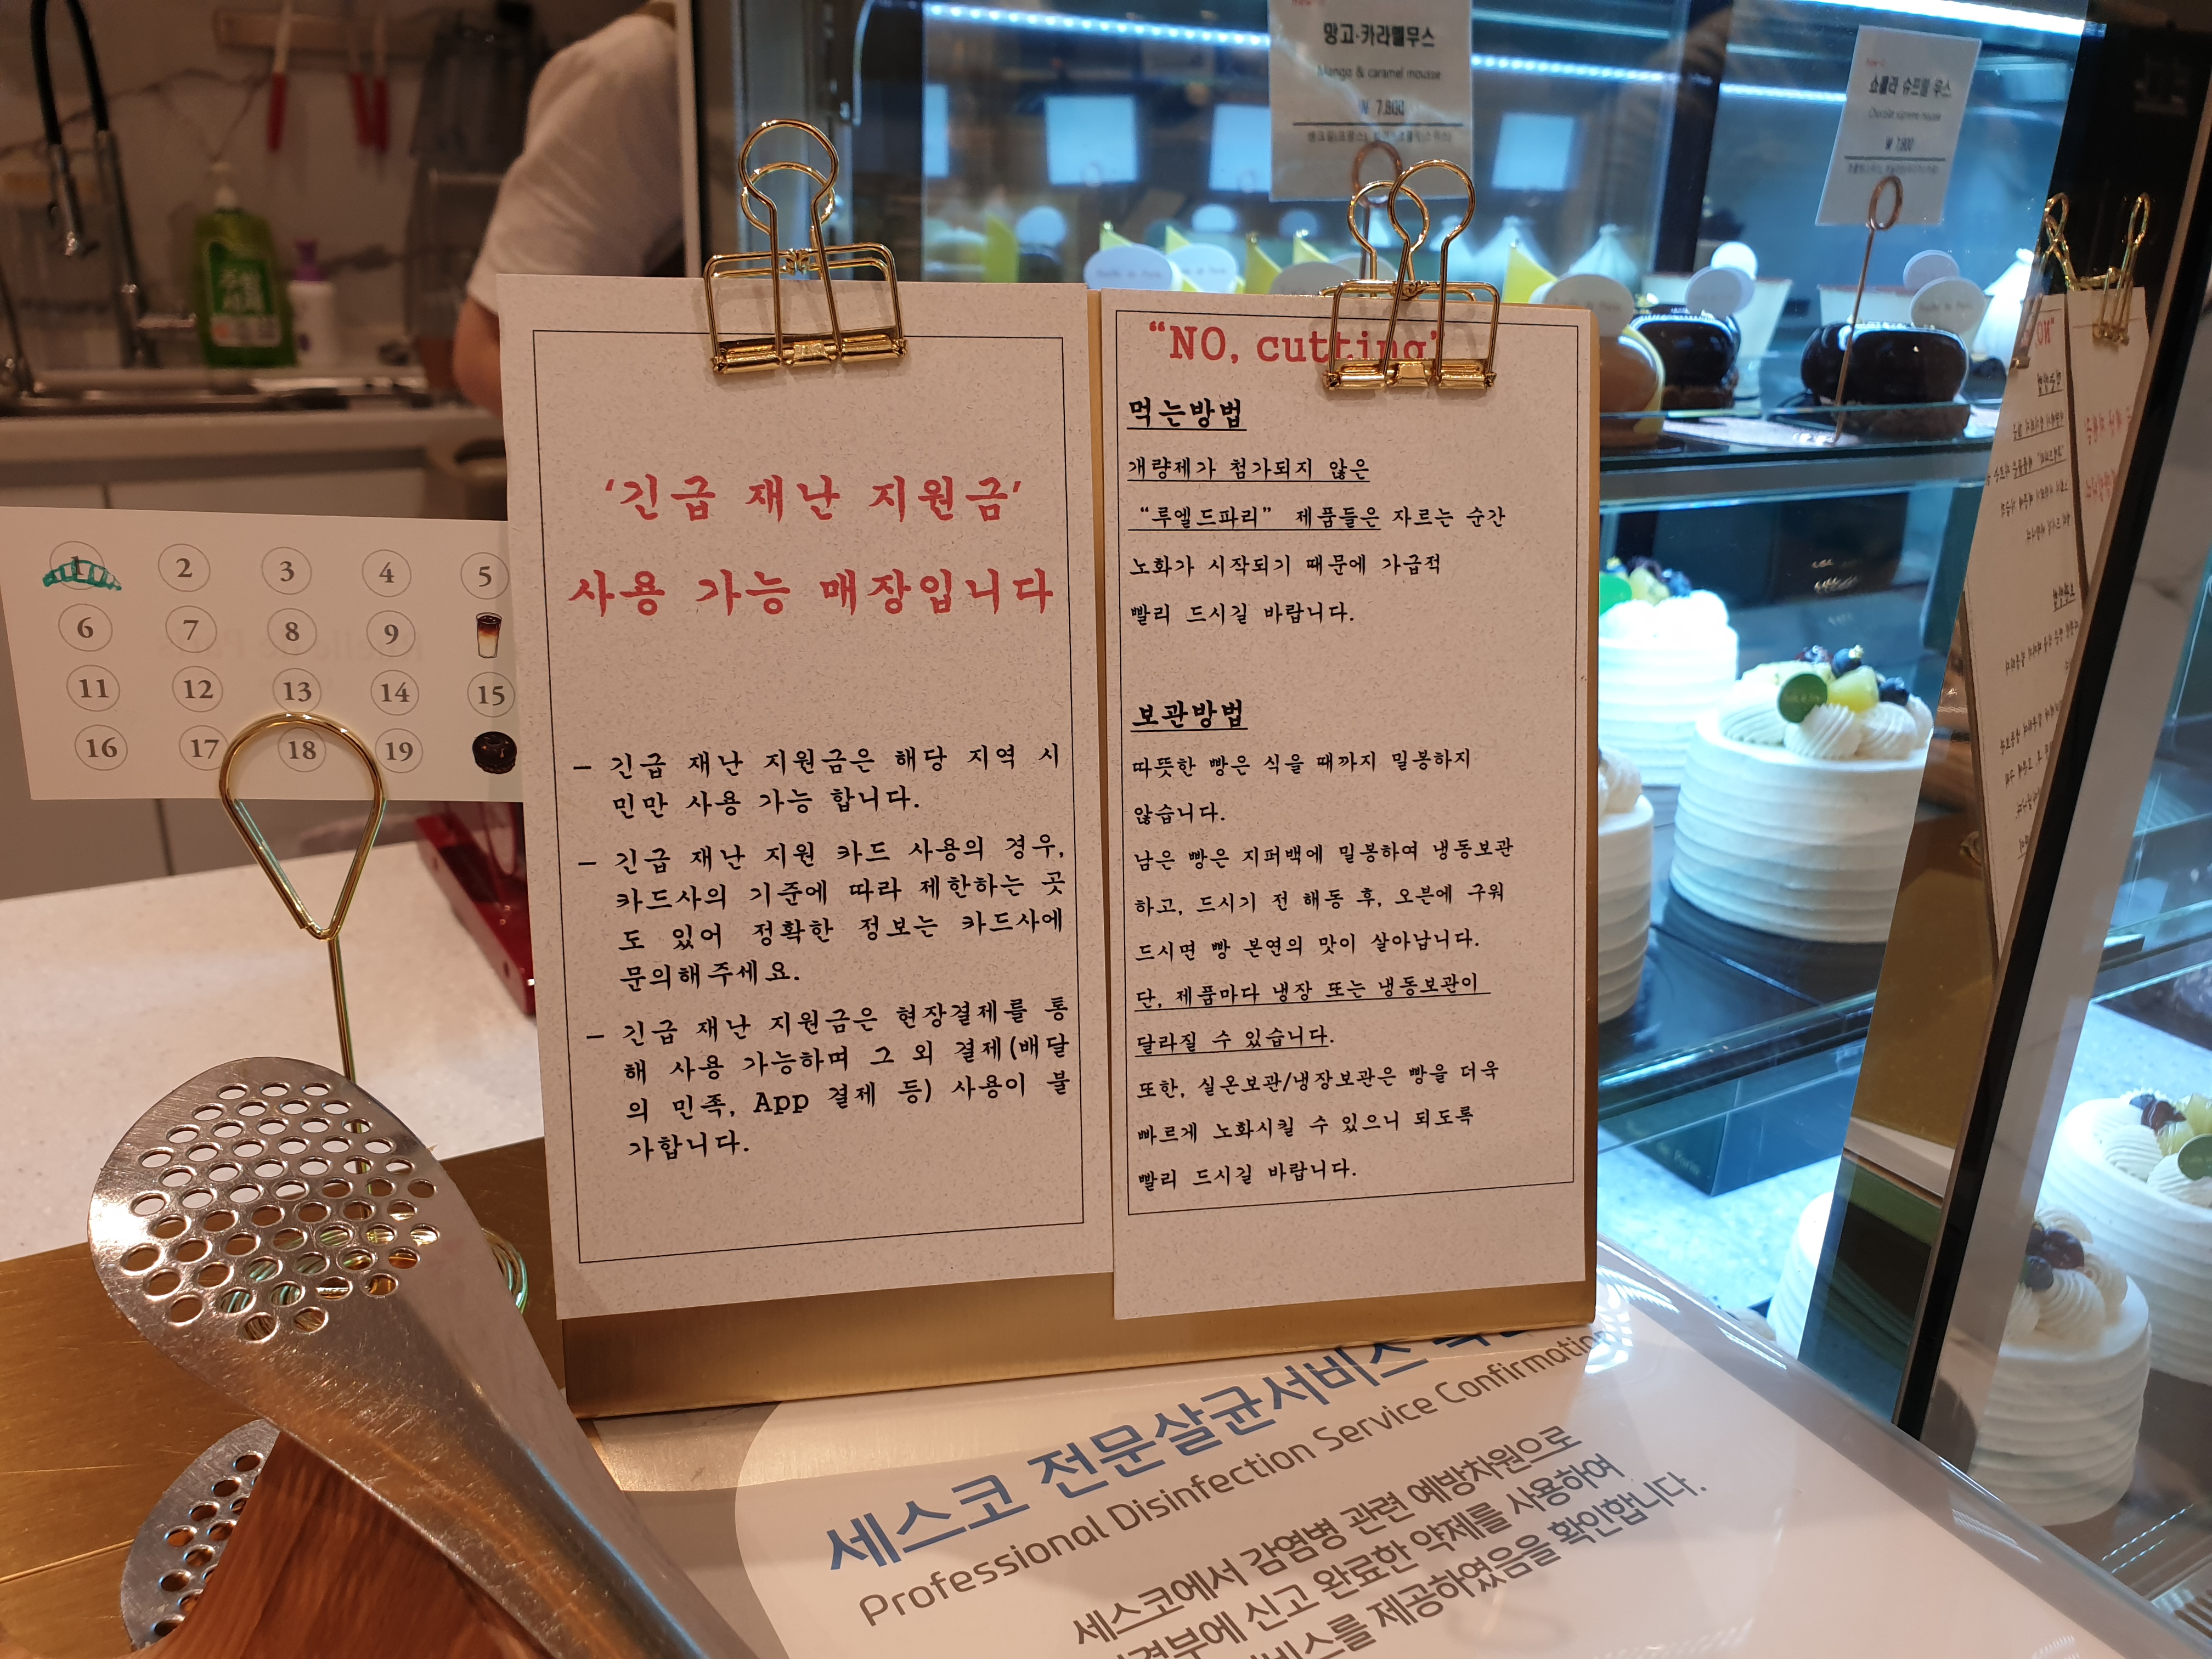 망고·카라멜무스
Mango & caramel mousse
₩ 7.800
쇼콜라 슈프림 무스
Chocolat supreme mousse
₩ 7,900
1 2 3 4 5
6 7 8 9
11 12 13 14 15
16 17 18 19
‘긴급 재난 지원금’
사용 가능 매장입니다
– 긴급 재난 지원금은 해당 지역 시
민만 사용 가능 합니다.
– 긴급 재난 지원 카드 사용의 경우,
카드사의 기준에 따라 제한하는 곳
도 있어 정확한 정보는 카드사에
문의해주세요.
– 긴급 재난 지원금은 현장결제를 통
해 사용 가능하며 그 외 결제(배달
의 민족, App 결제 등) 사용이 불
가합니다.
“NO, cutting”
먹는방법
개량제가 첨가되지 않은
“루엘드파리” 제품들은 자르는 순간
노화가 시작되기 때문에 가급적
빨리 드시길 바랍니다.
보관방법
따뜻한 빵은 식을 때까지 밀봉하지
않습니다.
남은 빵은 지퍼백에 밀봉하여 냉동보관
하고, 드시기 전 해동 후, 오븐에 구워
드시면 빵 본연의 맛이 살아납니다.
단, 제품마다 냉장 또는 냉동보관이
달라질 수 있습니다.
또한, 실온보관/냉장보관은 빵을 더욱
빠르게 노화시킬 수 있으니 되도록
빨리 드시길 바랍니다.
세스코 전문살균서비스
Professional Disinfection Service Confirmation
세스코에서 감염병 관련 예방차원으로
신고 완료한 약제를 사용하여
제공하였음을 확인합니다.